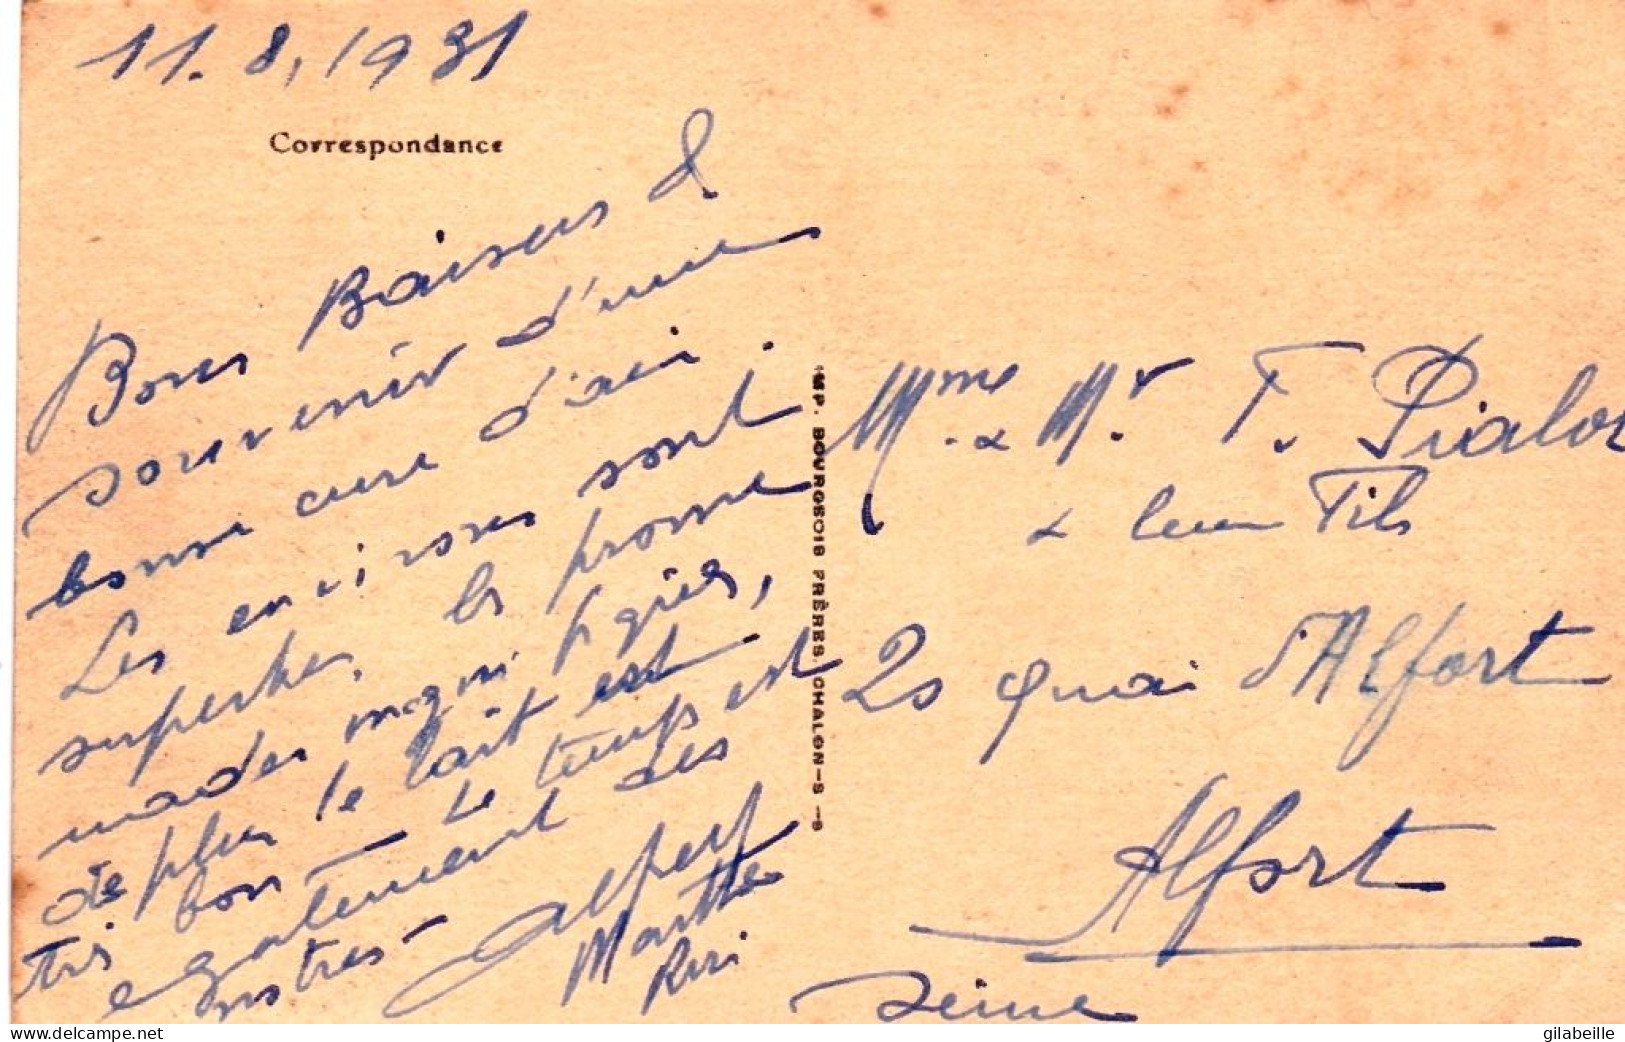 11.8.1931
Correspondance
Bons Baisers &
souvenir d'une
bonne cure d'air.
Les environs sont
superbes, les prome
nades magnifiques,
de plus le lait est
très bon — Le temps est
egalement des
nôtres —
Albert
Marthe
Riri
IMP. BOURGEOIS FRÈRES, CHALON-S-S
Mme & Mr F. Pialot
& leur Fils
20 quai d'Alfort
Alfort
Seine
www.delcampe.net
gilabeille